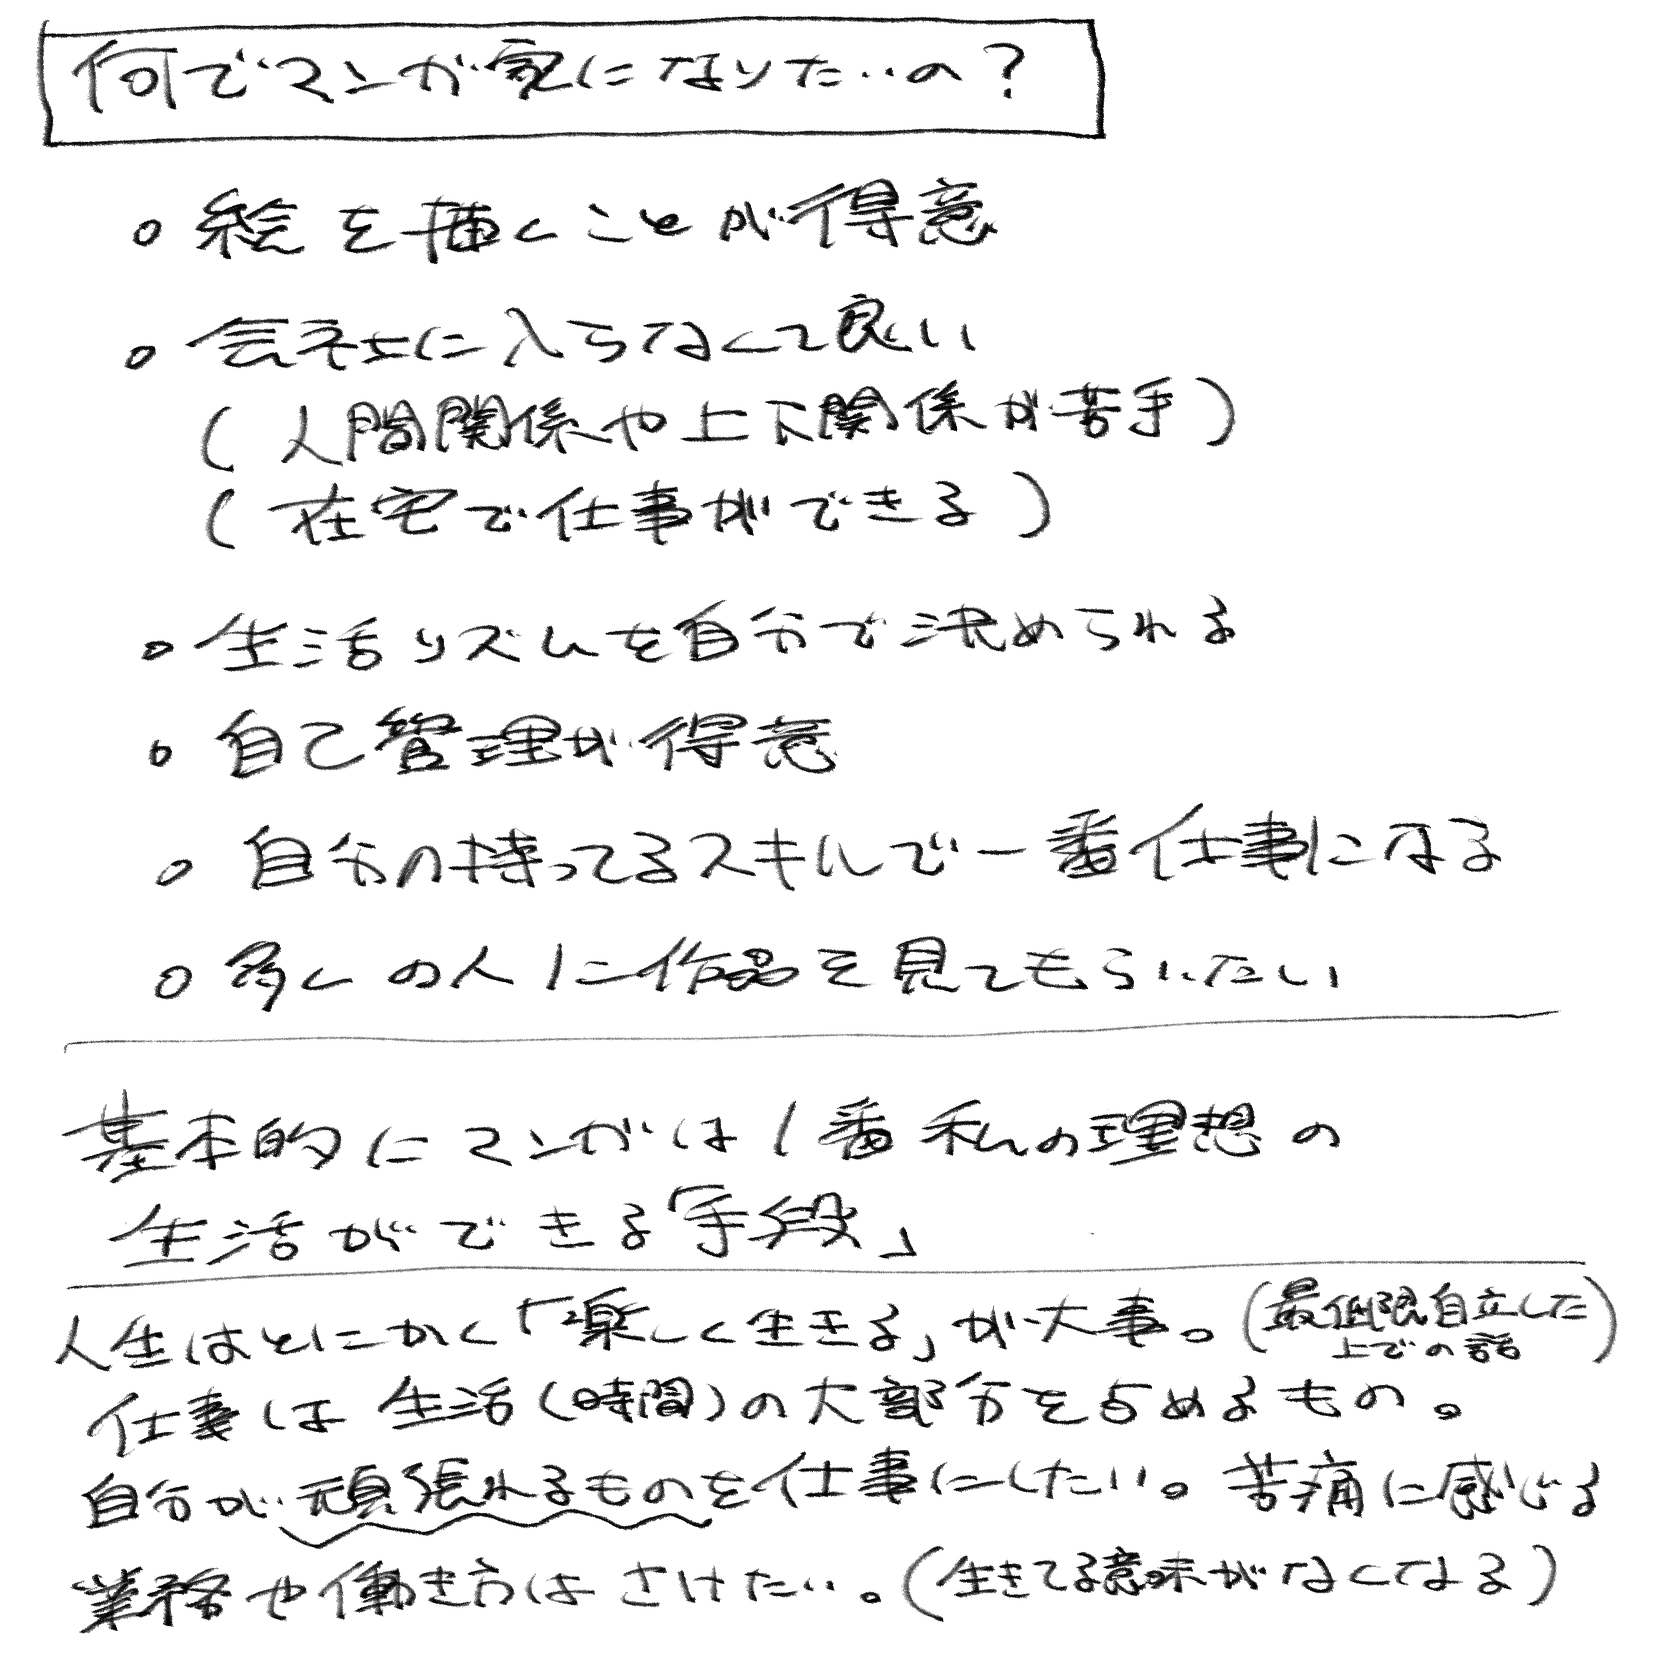 何でマンガ家になりたいの?
○ 絵を描くことが得意
○ 会社に入らなくて良い
(人間関係や上下関係が苦手)
(在宅で仕事ができる)
○ 生活リズムを自分で決められる
○ 自己管理が得意
○ 自分の持ってるスキルで一番仕事になる
○ 多くの人に作品を見てもらいたい
基本的にマンガは1番私の理想の
生活ができる「手段」
人生はとにかく「楽しく生きる」が大事。(最低限自立した
上での話)
仕事は生活(時間)の大部分を占めるもの。
自分が頑張れるものを仕事にしたい。苦痛に感じる
業務や働き方はさけたい。(生きてる意味がなくなる)